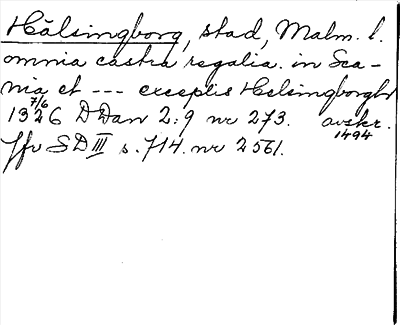 Hälsingborg, stad, Malm. l.
omnia castra regalia in Sca-
nia et --- exceptis Helsingborgh
7/6
1326 DDan 2:9 nr 273. avskr.
1494
Jfr SD III s. 714. nr 2561.